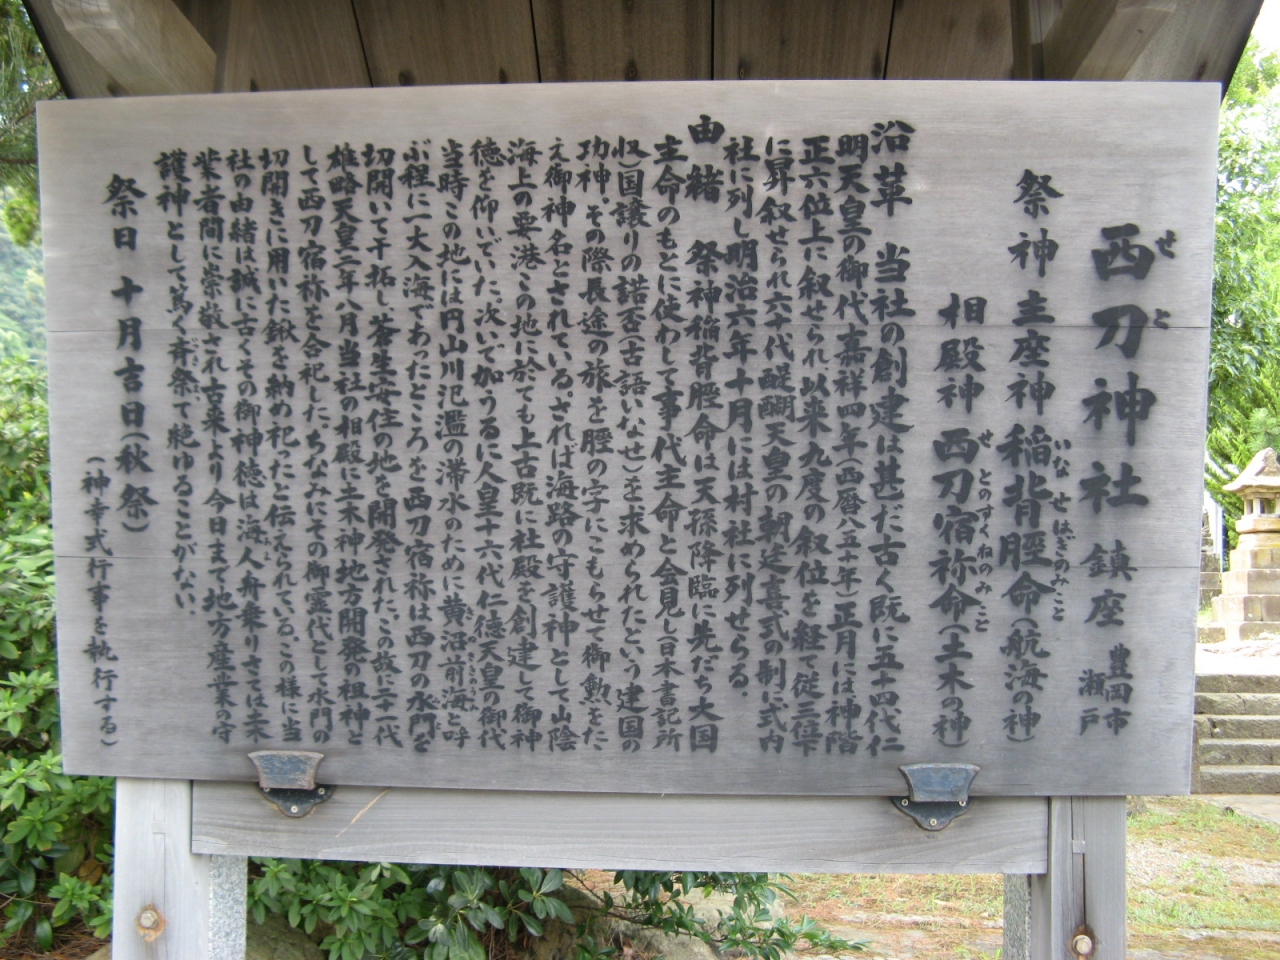 西刀神社 鎮座 豊岡市瀬戸
せと
祭神 主座神 稲背脛命(航海の神)
いなせはぎのみこと
相殿神 西刀宿祢命(土木の神)
せとのすくねのみこと
沿革 当社の創建は甚だ古く既に五十四代仁
明天皇の御代嘉祥四年(西暦八五十年)正月には神階
正六位上に叙せられ以来九度の叙位を経て従三位下
に昇叙せられ六十代醍醐天皇の朝延喜式の制に式内
社に列し明治六年十月には村社に列せらる。
由緒 祭神稲背脛命は天孫降臨に先だち大国
主命のもとに使わして事代主命と会見し(日本書記所
収)国譲りの諾否(古語いなせ)を求められたという建国の
功神。その際長途の旅を脛の字にこもらせて御勲をた
え御神名とされている。されば海路の守護神として山陰
海上の要港この地に於ても上古既に社殿を創建して御神
徳を仰いでいた。次いで加うるに人皇十六代仁徳天皇の御代
当時この地には円山川氾濫の滞水のために黄沼前海と呼
ぶ程に一大入海でわったところを西刀宿祢は西刀の水門を
切開いて干拓し蒼生安住の地を開発された。この故に二十一代
雄略天皇二年八月当社の相殿に土木神地方開発の祖神と
して西刀宿祢を合祀した。ちなみにその御霊代として水門の
切開きに用いた鍬を納め祀ったと伝えられている。この様に当
社の由緒は誠に古くその御神徳は海人舟乗りさては土木
業者間に崇敬され古来より今日まて地方産業の守
護神として篤く斉祭て絶ゆることがない。
祭日 十月吉日(秋祭)
(神幸式行事を執行する)